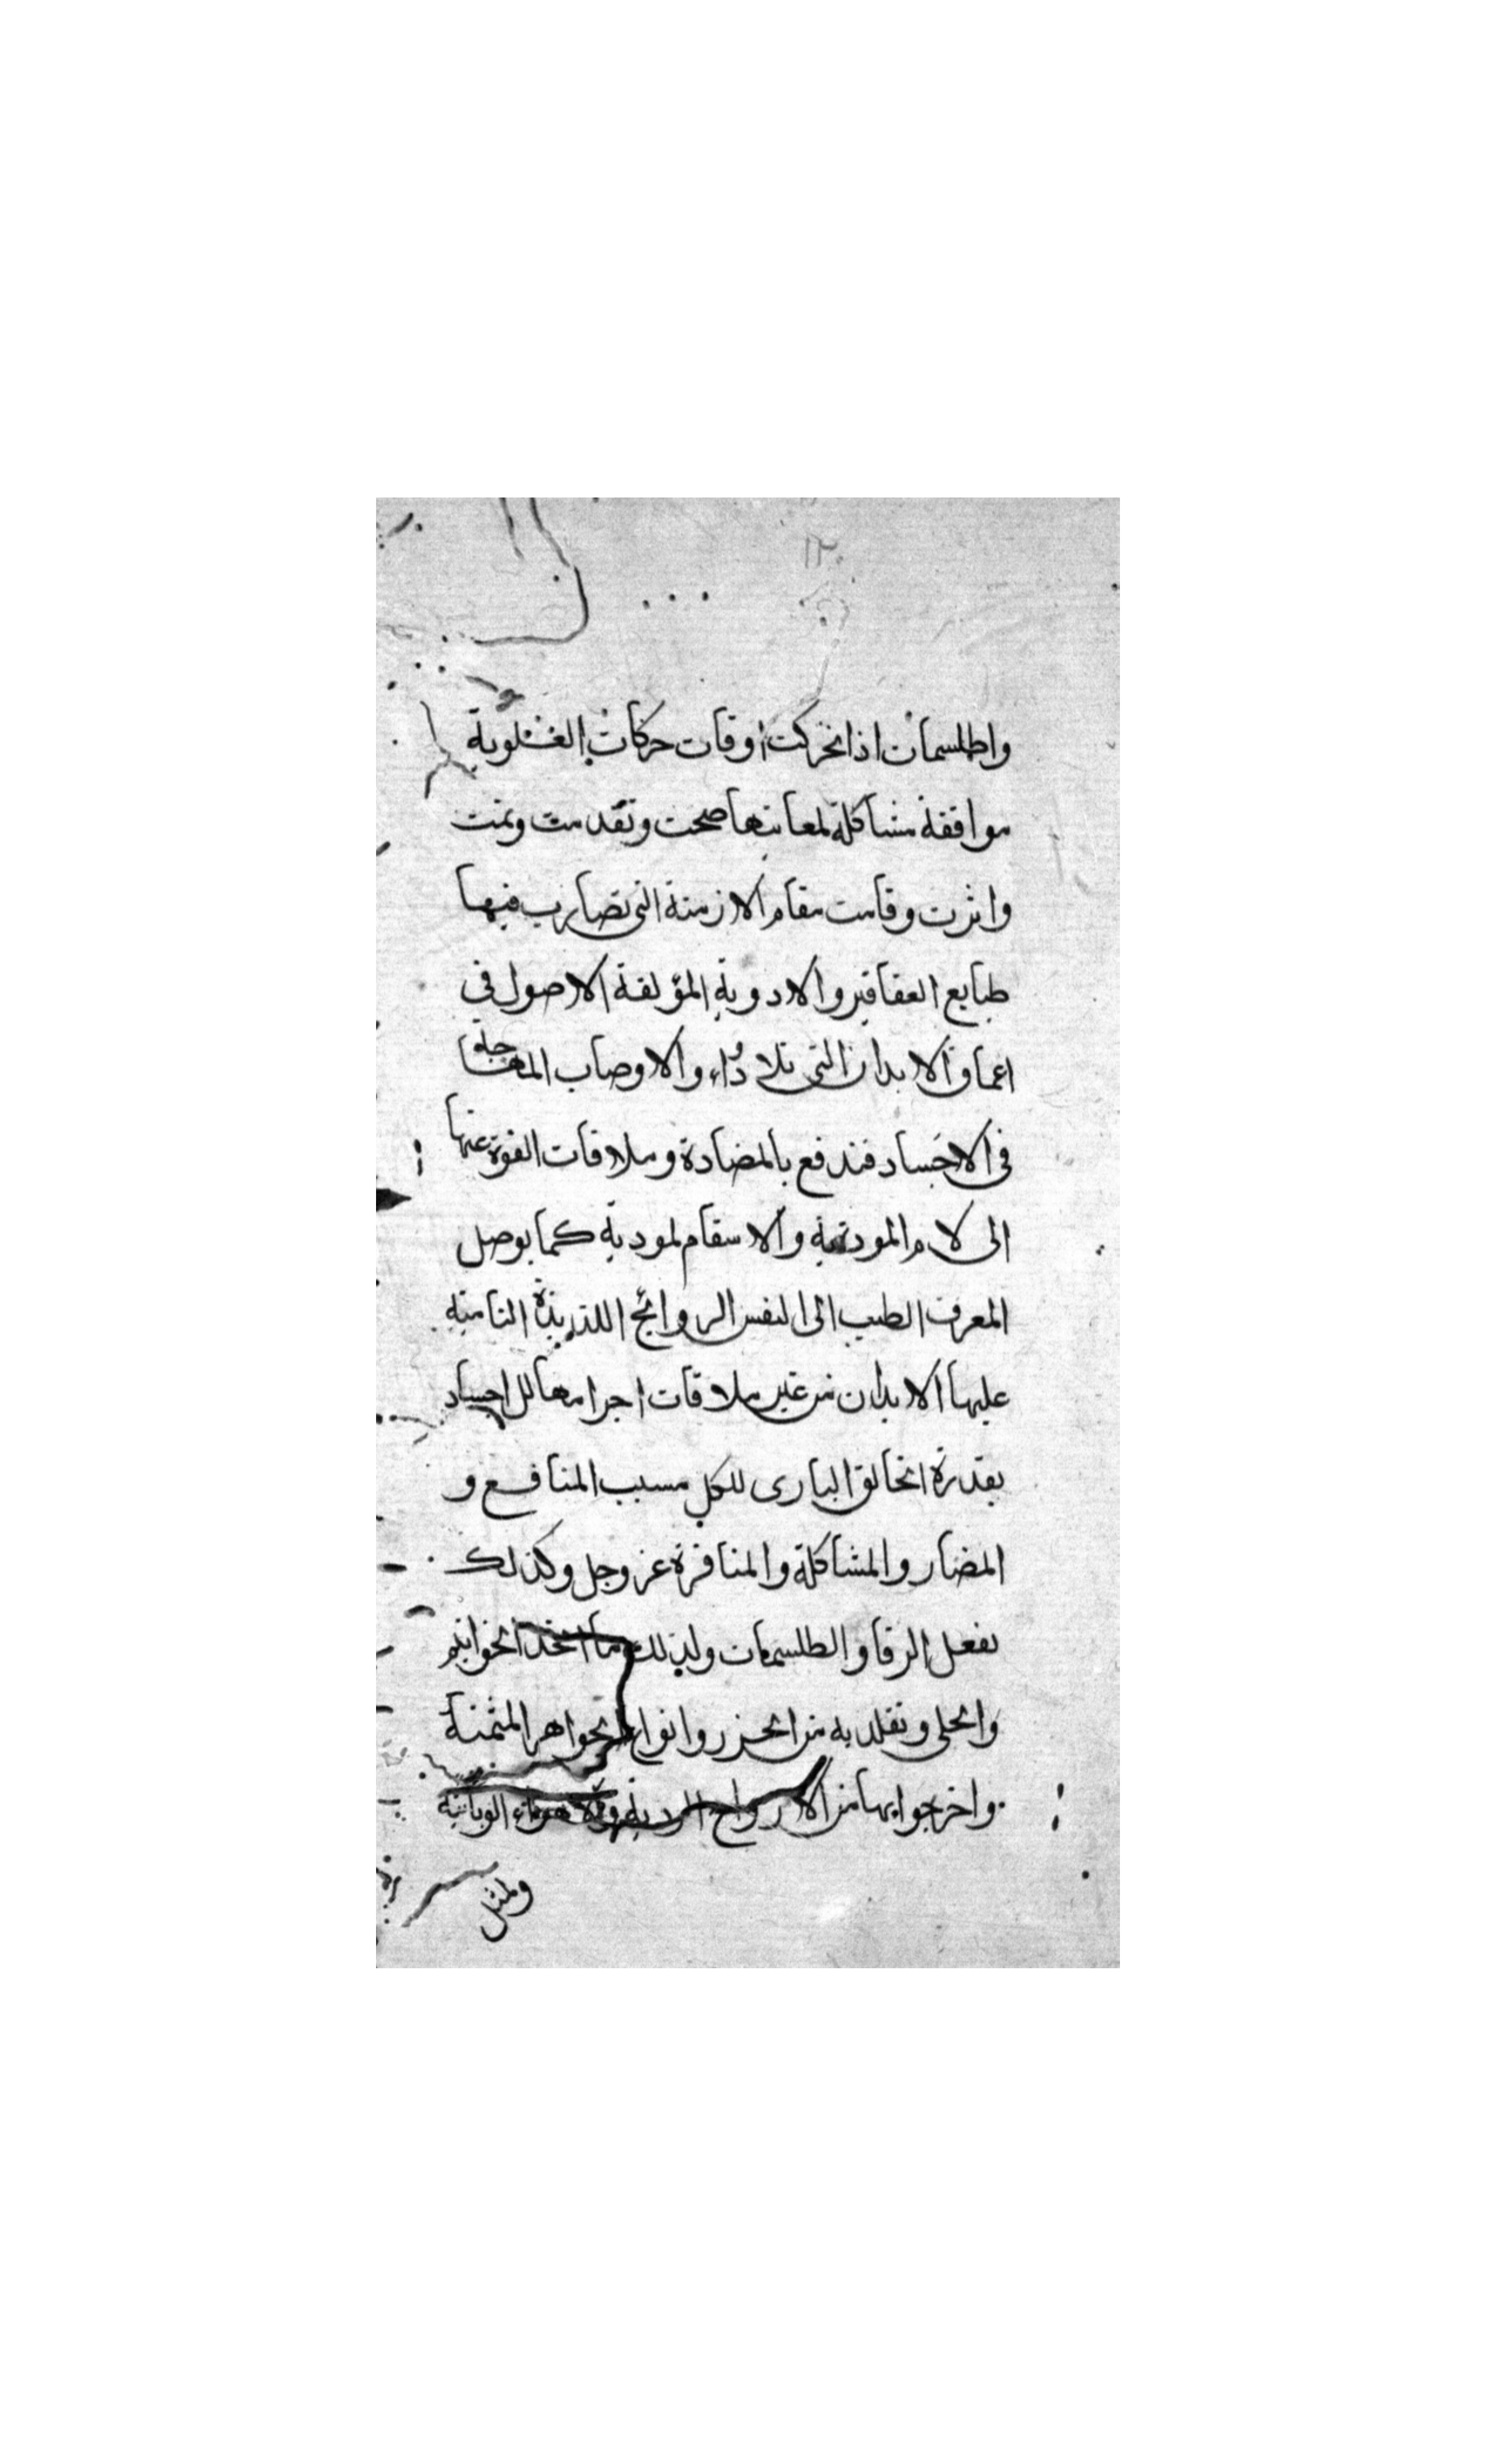 ١٢٠
واطلسمات اذا تحركت اوقات حركات العلوية
موافقة مشاكلة لمعانيها صحت وتقدمت وتمت
واثرت وقامت مقام الازمنة التى تضارب فيها
طبايع العقاقير والادوية المؤلفة الاصول فى
اعماق الابدان التى تلا دواء والاوصاب
فى الاجساد فتدفع بالمضادة وملاقات القوة عنها
الى لام المودية والاسقام لمودية كما يوصل
المعرف الطيب الى النفس الروائح اللذيذة النامية
عليها الابدان من غير ملاقات اجرامها للاجساد
بقدرة الخالق البارى للكل مسبب المنافع و
المضار والمشاكلة والمنافرة عز وجل وكذلك
تفعل الرقا والطلسمات ولذلك ما اتخذ الخواتيم
والحلى وتقلد به من الخرز وانواع الجواهر المثمنة
واخرجوا بها من الارواح الردية والاهواء الوبائية
ولمثل